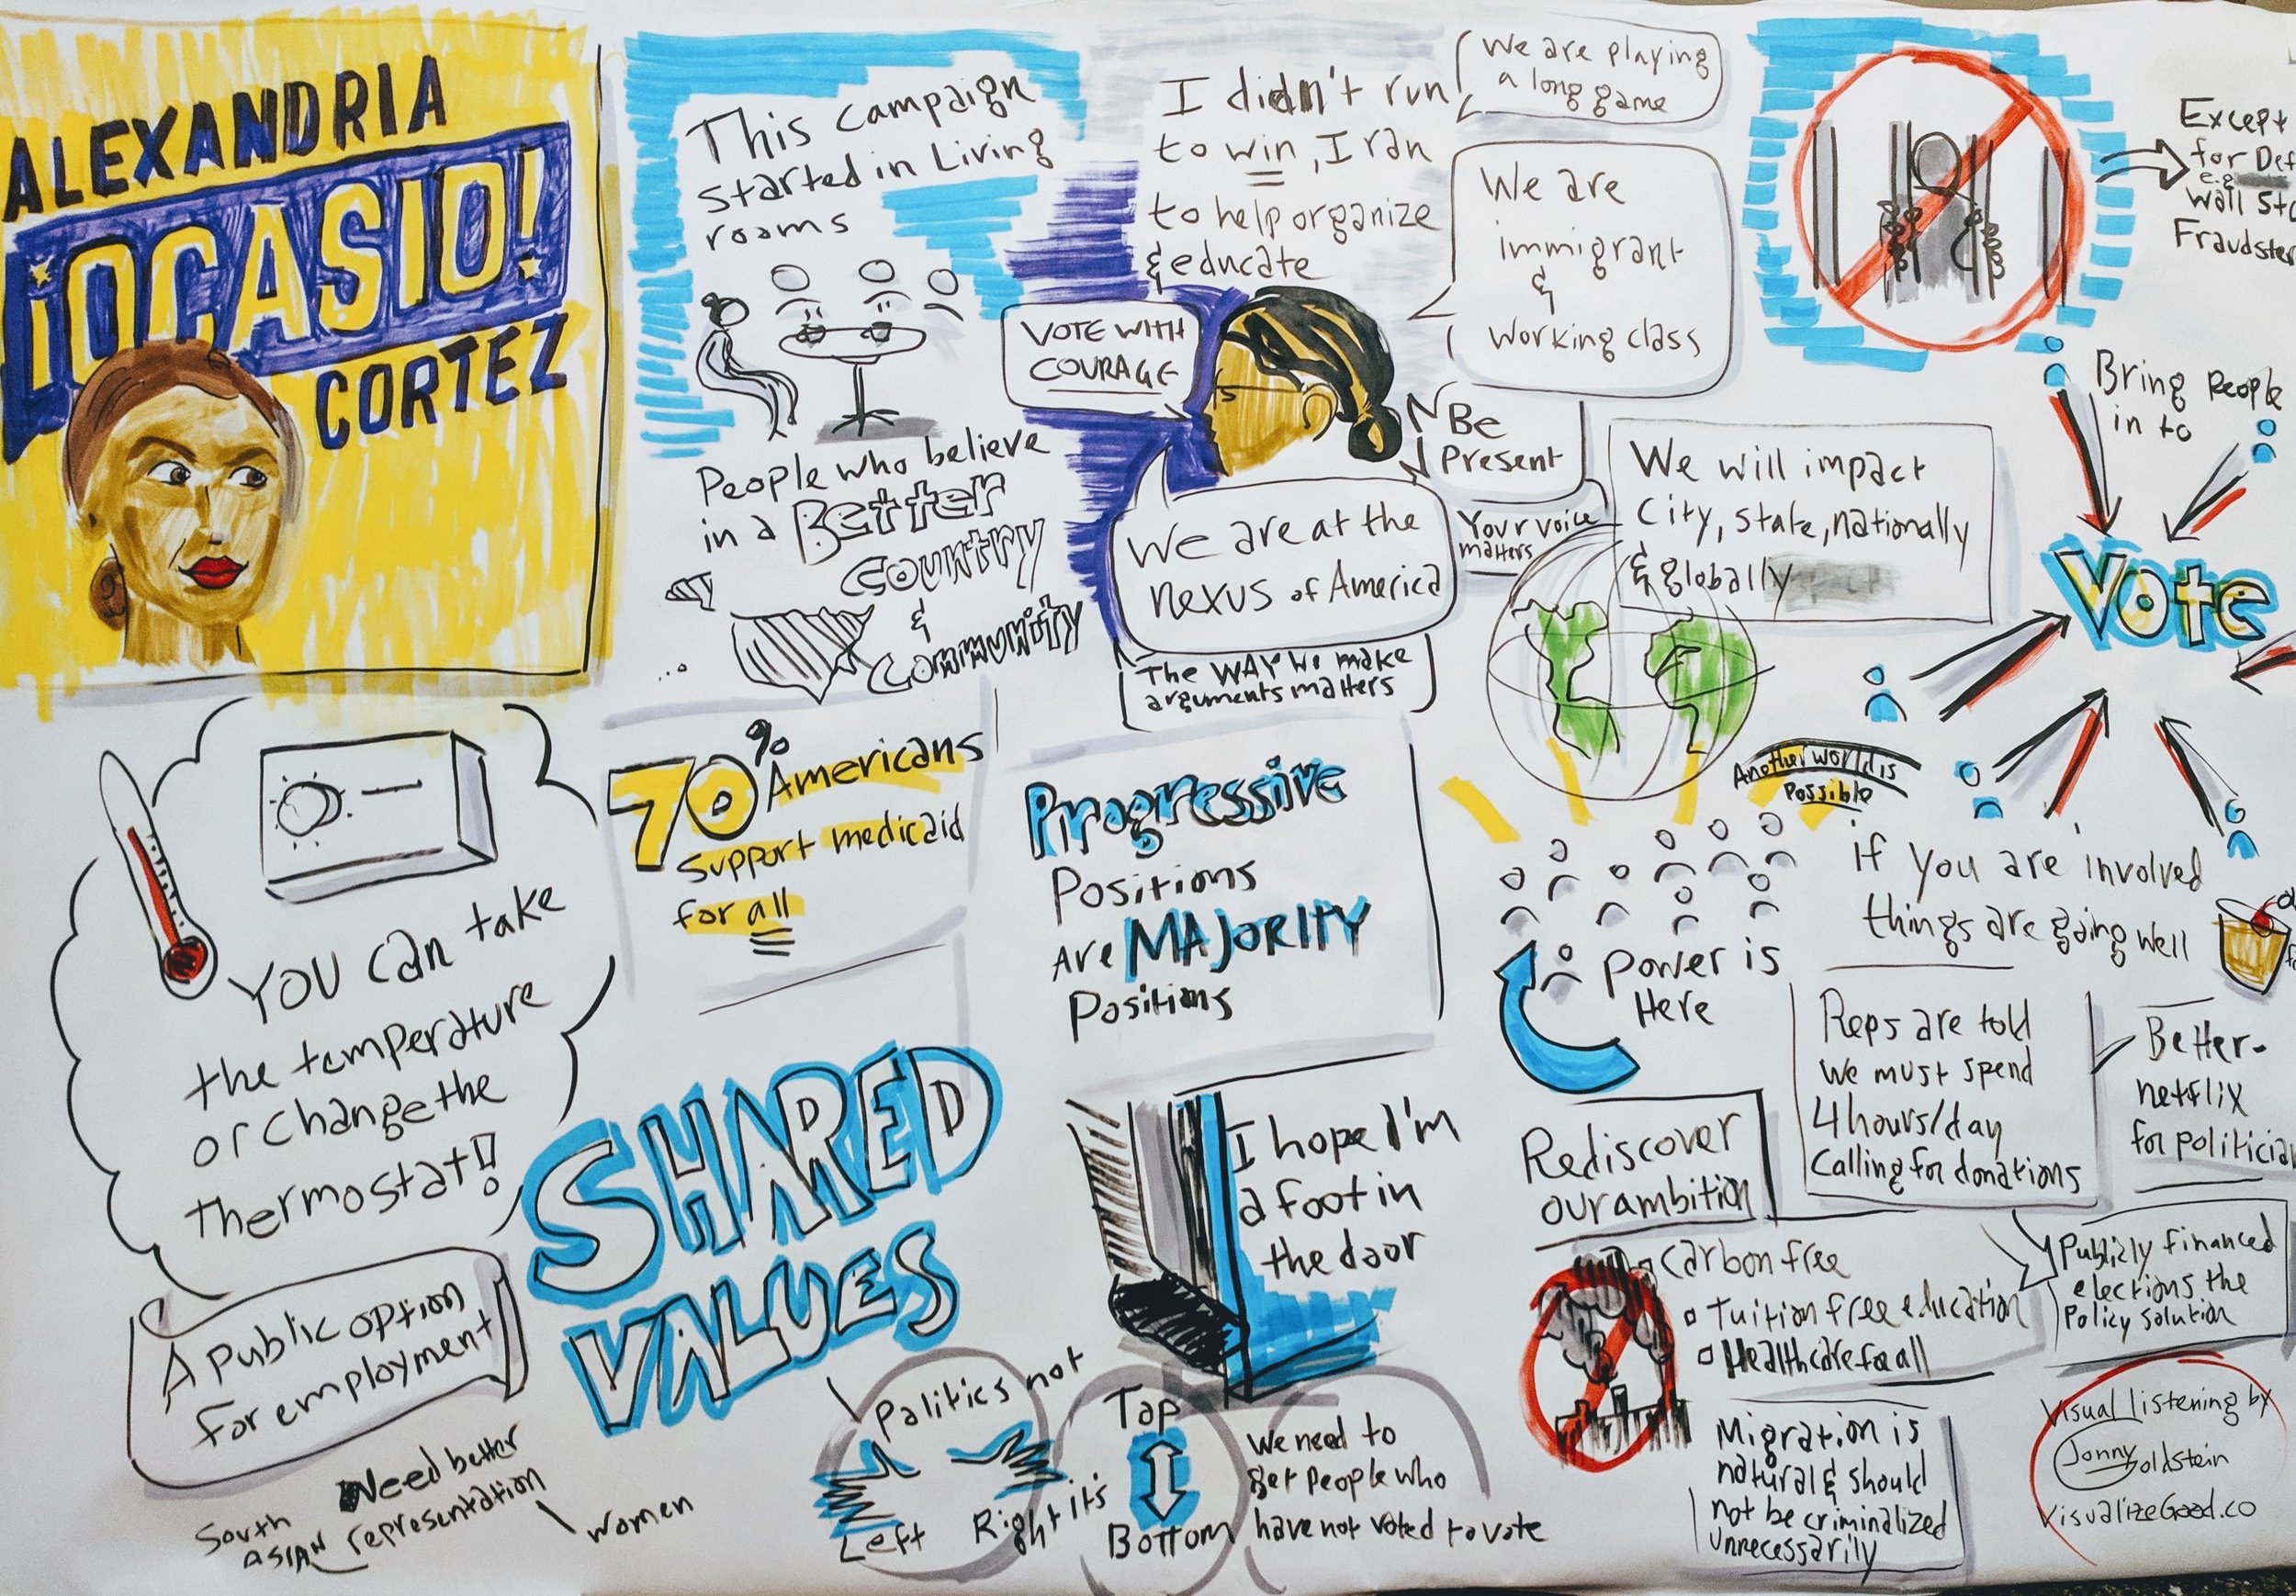 ALEXANDRIA
¡OCASIO!
CORTEZ
This campaign
started in Living
rooms
People who believe
in a Better
Country
&
Community
I didn't run
to win, I ran
to help organize
& educate
We are playing
a long game
We are
immigrant
&
working class
VOTE WITH
COURAGE
Be
Present
We are at the
nexus of America
Your voice
matters
The WAY we make
arguments matters
We will impact
City, state, nationally
& globally
Except
for Def
e.g.
Wall St
Fraudster
Bring People
in to
Vote
Another world is
Possible
if you are involved
things are going well
Power is
Here
YOU can take
the temperature
or change the
thermostat!!
70% Americans
Support medicaid
for all
Progressive
Positions
Are MAJORITY
Positions
SHARED
VALUES
I hope I'm
a foot in
the door
Rediscover
our ambition
Carbon free
Tuition free education
Healthcare for all
Reps are told
we must spend
4 hours/day
Calling for donations
Better
netflix
for politicia
Publicly financed
elections the
Policy solution
A Public option
for employment
Need better
representation
South
ASIAN
women
Politics not
Left Right it's
Top
Bottom
We need to
get people who
have not voted to vote
Migration is
natural & should
not be criminalized
unnecessarily
Visual listening by
Jonny Goldstein
VisualizeGood.co